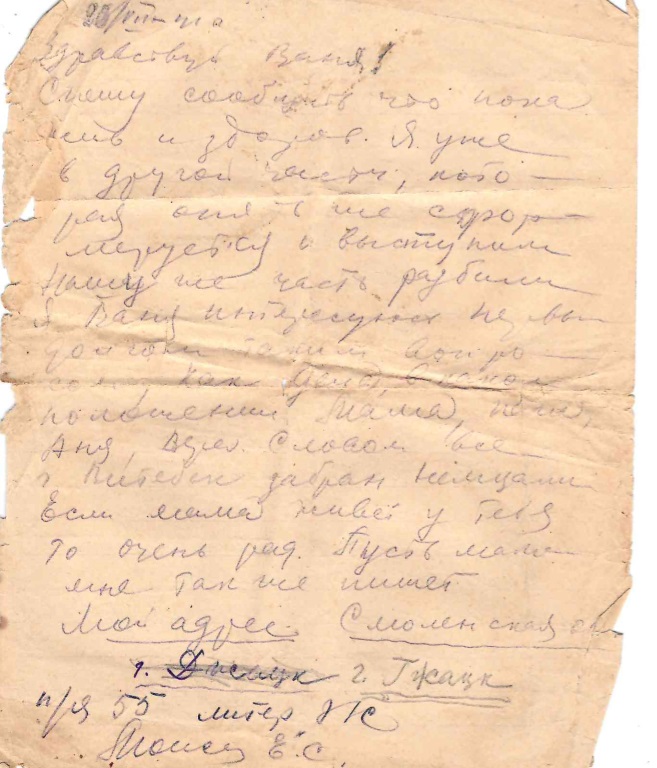 28/VIII-41 г
Здравствуй Ваня!
Спешу сообщить что пока
жив и здоров. Я уже
в другой части, кото-
рая опять же сфор-
мируется и выступим
Нашу же часть разбили
Я Ваня интересуюсь
таким вопро-
сом, как дела, в каком
положении Мама,
Аня, Словом все
г Витебск забран немцами
Если мама живёт у тебя
то очень рад. Пусть мама
мне так же пишет
Мой адрес. Смоленская о
г. г. Гжатск
п/я 55 литер
Е. С.